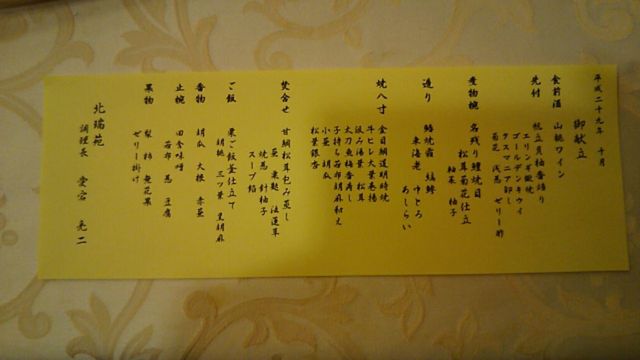 平成二十九年 十月
御献立
食前酒 山桃ワイン
先付 帆立貝柚香諸り
エリンギ酸焼
ゴールデンキウイ
タスマニア卸し
菊花 浅葱 ゼリー酢
煮物椀 名残り鱧焼目
松茸菊花仕立
軸菜 柚子
造り 鰆焼霜 鮪鮮
車海老 中とろ
あしらい
焼八寸 金目鯛道明時焼
牛ヒレ大葉巻揚
汲み湯葉 松茸
太刀魚梅香寿し
子持ち昆布胡麻和え
小蕪 胡瓜
松葉銀杏
焚合せ 甘鯛松茸包み蒸し
蕪 粟麩 法蓮草
焼葱 針柚子
スープ餡
ご飯 栗ご飯釜仕立て
胡桃 三ツ葉 黒胡麻
香物 胡瓜 大根 赤蕪
止椀 田舎味噌
若布 葱 豆腐
果物 梨 柿 無花果
ゼリー掛け
北瑞苑
調理長